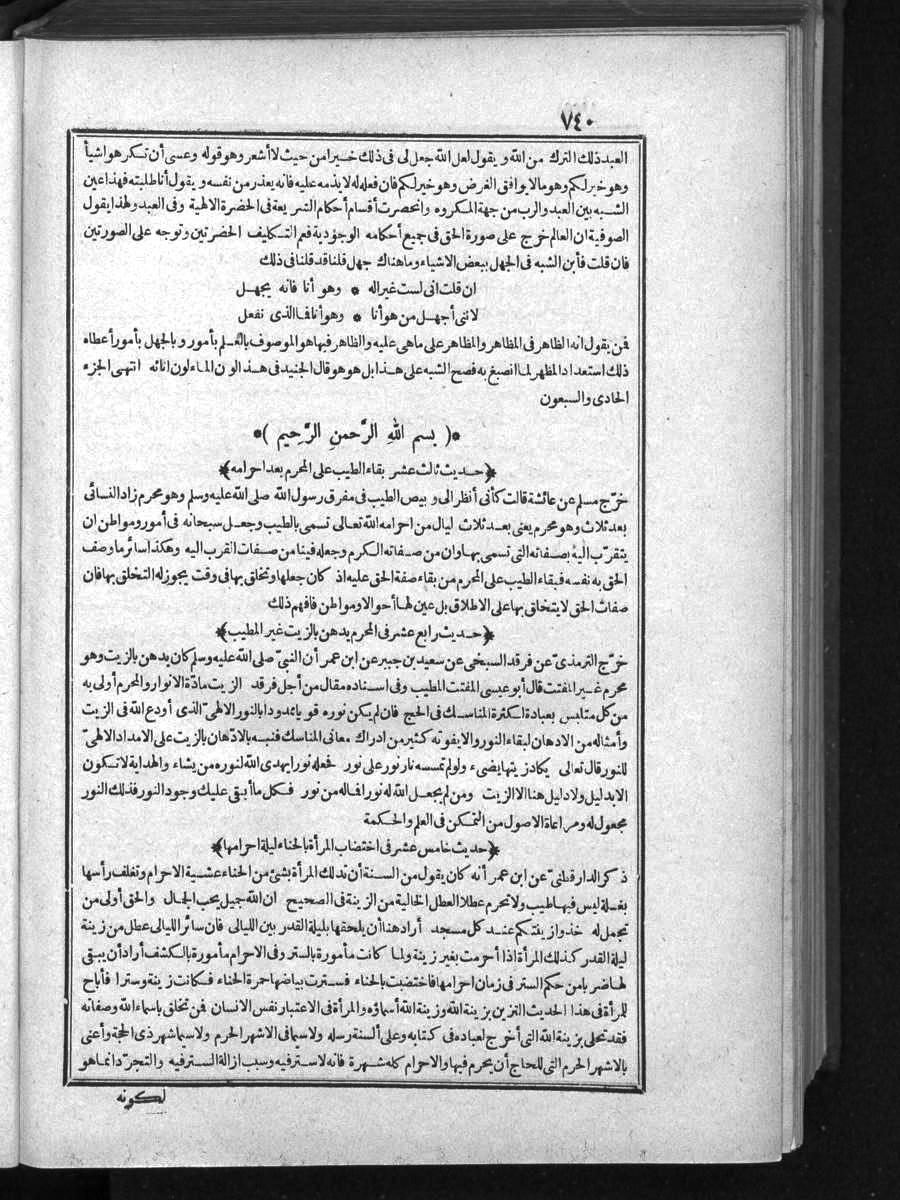 ٧٤٠
العبد ذلك الترك من الله ويقول لعل الله جعل لى فى ذلك خيرا من حيث لا أشعر وهو قوله وعسى أن تكرهوا شيأ
وهو خير لكم وهو ما لا يوافق الغرض وهو خير لكم فان فعله له لا يذمه عليه فانه يعذر من نفسه ويقول أنا طلبته فهذا عين
الشبه بين العبد والرب من جهة المكروه وانحصرت أقسام أحكام الشريعة فى الحضرة الالهية وفى العبد ولهذا يقول
الصوفية ان العالم خرج على صورة الحق فى جميع أحكامه الوجودية فعم التكليف الحضرتين وتوجه على الصورتين
فان قلت فأين الشبه فى الجهل ببعض الاشياء وما هناك جهل قلنا قد قلنا فى ذلك
ان قلت انى لست غيرا له * وهو أنا فانه يجهل
لاننى أجهل من هو أنا * وهو أنا فما الذى نفعل
فمن يقول انه الظاهر فى المظاهر والمظاهر على ماهى عليه والظاهر فيها هو الموصوف بالعلم بأمور وبالجهل بأمور أعطاه
ذلك استعداد المظهر لما انصبغ به فصح الشبه على هذا بل هو هو قال الجنيد فى هذا لون الماء لون انائه انتهى الجزء
الحادى والسبعون
*( بسم الله الرَّحمن الرَّحِيم )*
﴿حديث ثالث عشر بقاء الطيب على المحرم بعد احرامه﴾
خرّج مسلم عن عائشة قالت كأنى أنظر الى وبيص الطيب فى مفرق رسول الله صلى الله عليه وسلم وهو محرم زاد النسائى
بعد ثلاث وهو محرم يعنى بعد ثلاث ليال من احرامه الله تعالى تسمى بالطيب وجعل سبحانه فى أمور ومواطن ان
يتقرّب اليه بصفاته التى تسمى بها وان من صفاته الكرم وجعله فينا من صفات القرب اليه وهكذا سائر ما وصف
الحق به نفسه فبقاء الطيب على المحرم من بقاء صفة الحق عليه اذ كان جعلها وتخلق بها فى وقت يجوز له التخلق بها فان
صفات الحق لا يتخلق بها على الاطلاق بل عين لها أحوالا ومواطن فافهم ذلك
﴿حديث رابع عشر فى المحرم يدهن بالزيت غير المطيب﴾
خرّج الترمذىّ عن فرقد السبخى عن سعيد بن جبير عن ابن عمر أن النبىّ صلى الله عليه وسلم كان يدهن بالزيت وهو
محرم غير المفتت قال أبو عيسى المفتت المطيب وفى اسناده مقال من أجل فرقد الزيت مادّة الانوار والمحرم أولى به
من كل متلبس بعبادة لكثرة المناسك فى الحج فان لم يكن نوره قويا ممدودا بالنور الالهىّ الذى أودع الله فى الزيت
وأمثاله من الادهان لبقاء النور والا يفوته كثير من ادراك معانى المناسك فنبه بالادّهان بالزيت على الامداد الالهىّ
للنور قال تعالى يكاد زيتها يضىء ولو لم تمسسه نار نور على نور فجعله نورا يهدى الله لنوره من يشاء والهداية لا تكون
الا بدليل ولا دليل هنا الا الزيت ومن لم يجعل الله له نورا فما له من نور فكل ما أبقى عليك وجود النور فذلك النور
مجعول له ومراعاة الاصول من التمكن فى العلم والحكمة
﴿حديث خامس عشر فى اختضاب المرأة بالحناء ليلة احرامها﴾
ذكر الدارقطنىّ عن ابن عمر أنه كان يقول من السنة أن تدلك المرأة بشئ من الحناء عشية الاحرام وتغلف رأسها
بغسلة ليس فيها طيب ولا تحرم عطلا العطل الخالية من الزينة فى الصحيح ان الله جميل يحب الجمال والحق أولى من
تجمل له خذوا زينتكم عند كل مسجد أراد هنا أن يلحقها بليلة القدر بين الليالى فان سائر الليالى عطل من زينة
ليلة القدر كذلك المرأة اذا أحرمت بغير زينة ولما كانت مأمورة بالستر وفى الاحرام مأمورة بالكشف أراد أن يبقى
لها ضربا من حكم الستر فى زمان احرامها فاختضبت بالحناء فسترت بياضها حمرة الحناء فكانت زينة وسترا فأباح
للمرأة فى هذا الحديث التزين بزينة الله وزينة الله أسماؤه والمرأة فى الاعتبار نفس الانسان فمن تخلق باسماء الله وصفاته
فقد تحلى بزينة الله التى أخرج لعباده فى كتابه وعلى ألسنة رسله ولا سيما فى الاشهر الحرم ولا سيما شهر ذى الحجة وأعنى
بالاشهر الحرم التى للحاج أن يحرم فيها والاحرام كله شهرة فانه لا ستر فيه وسبب ازالة الستر فيه والتجرّد انما هو
لكونه